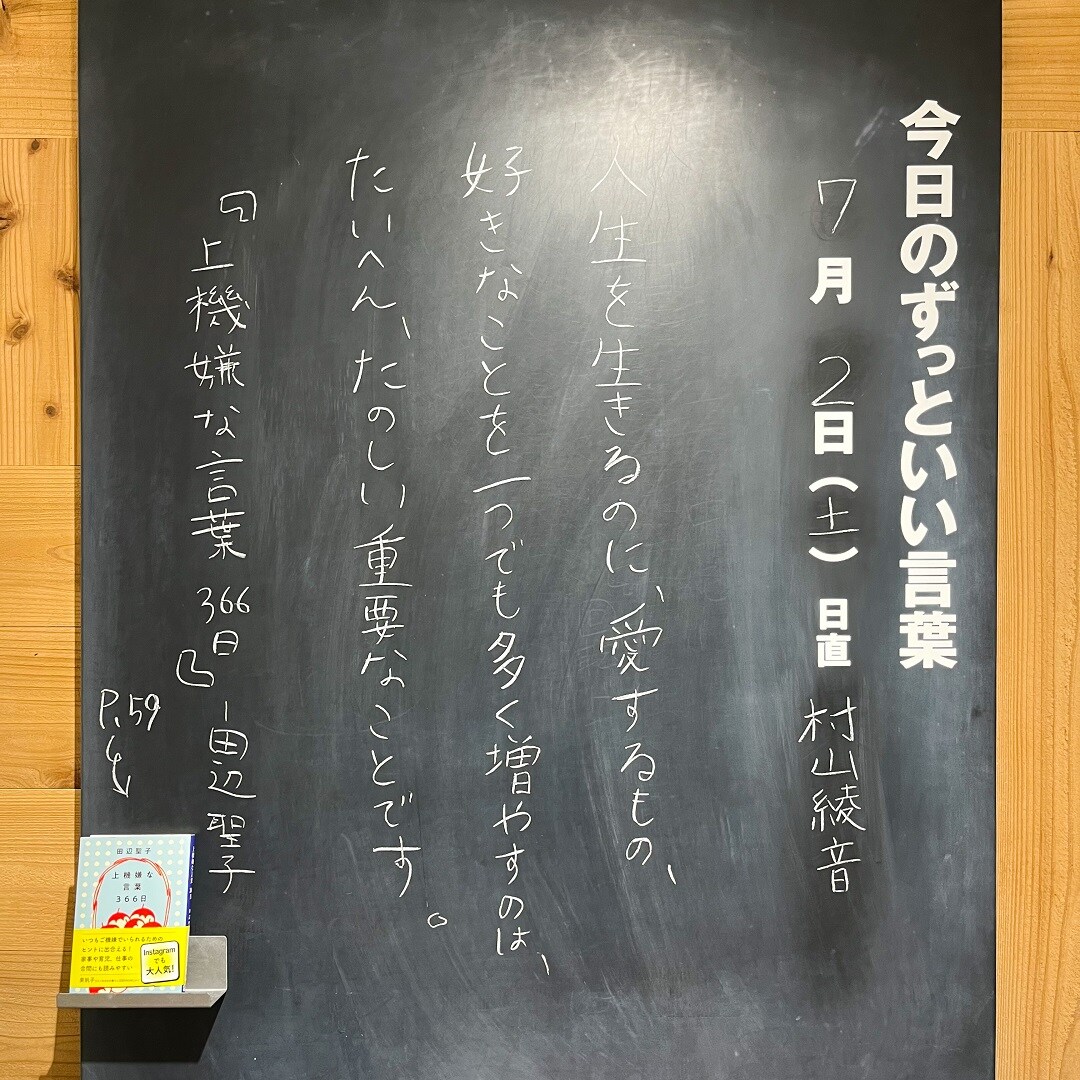 今日のずっといい言葉
7月2日(土)日直 村山綾音
人生を生きるのに、愛するもの、
好きなことを一つでも多く増やすのは、
たいへん、たのしい重要なことです。
『上機嫌な言葉366日』-田辺聖子
P.59
田辺聖子
上機嫌な
言葉
366日
いつもご機嫌でいられるための
ヒントに出会える!
家事や育児、仕事の
合間にも読みやすい
Instagram
でも
大人気!